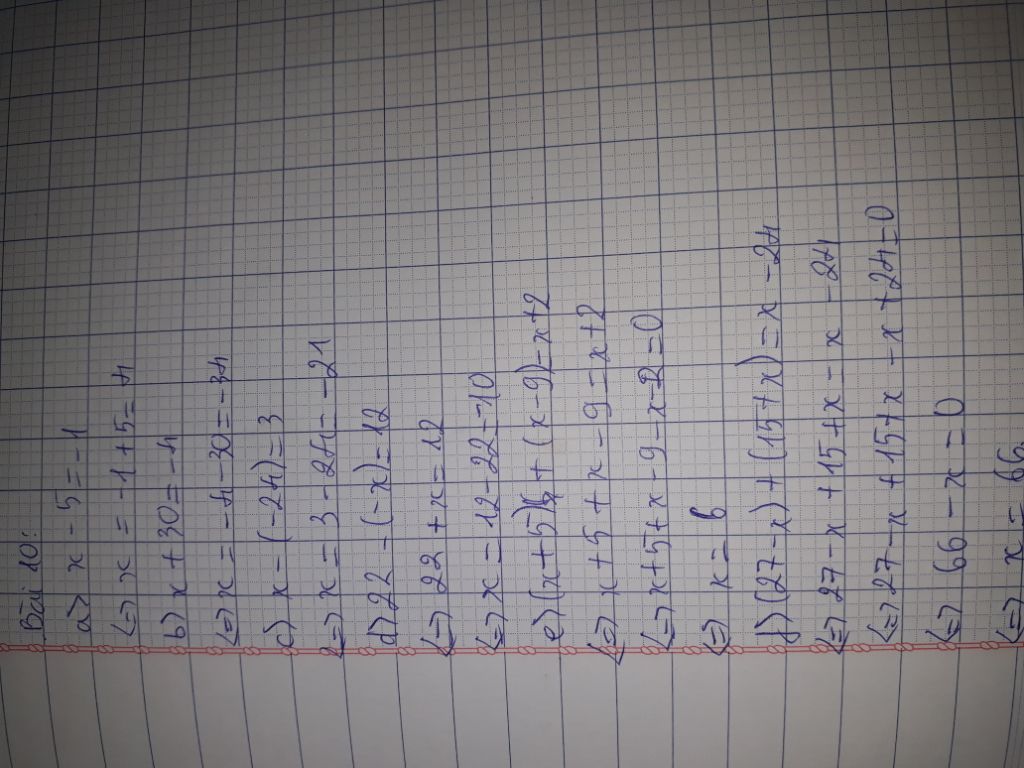 Bài 10:
a) x - 5 = -1
<=> x = -1 + 5 = 4
b) x + 30 = -4
<=> x = -4 - 30 = -34
c) x - (-24) = 3
<=> x = 3 - 24 = -21
d) 22 - (-x) = 12
<=> 22 + x = 12
<=> x = 12 - 22 = -10
e) (x + 5) + (x - 9) = x + 2
<=> x + 5 + x - 9 = x + 2
<=> x + 5 + x - 9 - x - 2 = 0
<=> x = 6
f) (27 - x) + (15 + x) = x - 24
<=> 27 - x + 15 + x = x - 24
<=> 27 - x + 15 + x - x + 24 = 0
<=> 66 - x = 0
<=> x = 66